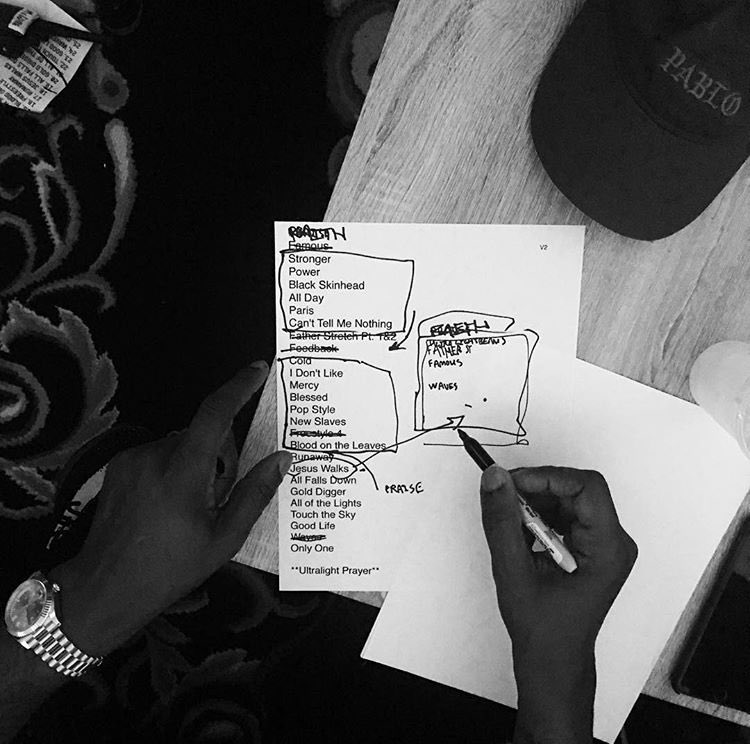 V2
Famous
Stronger
Power
Black Skinhead
All Day
Paris
Can't Tell Me Nothing
Father Stretch Pt. 1&2
Feedback
Cold
I Don't Like
Mercy
Blessed
Pop Style
New Slaves
Freestyle 4
Blood on the Leaves
Runaway
Jesus Walks
All Falls Down
Gold Digger
All of the Lights
Touch the Sky
Good Life
Waves
Only One
**Ultralight Prayer**
FATHER S
FAMOUS
WAVES
PRAISE
PABLO